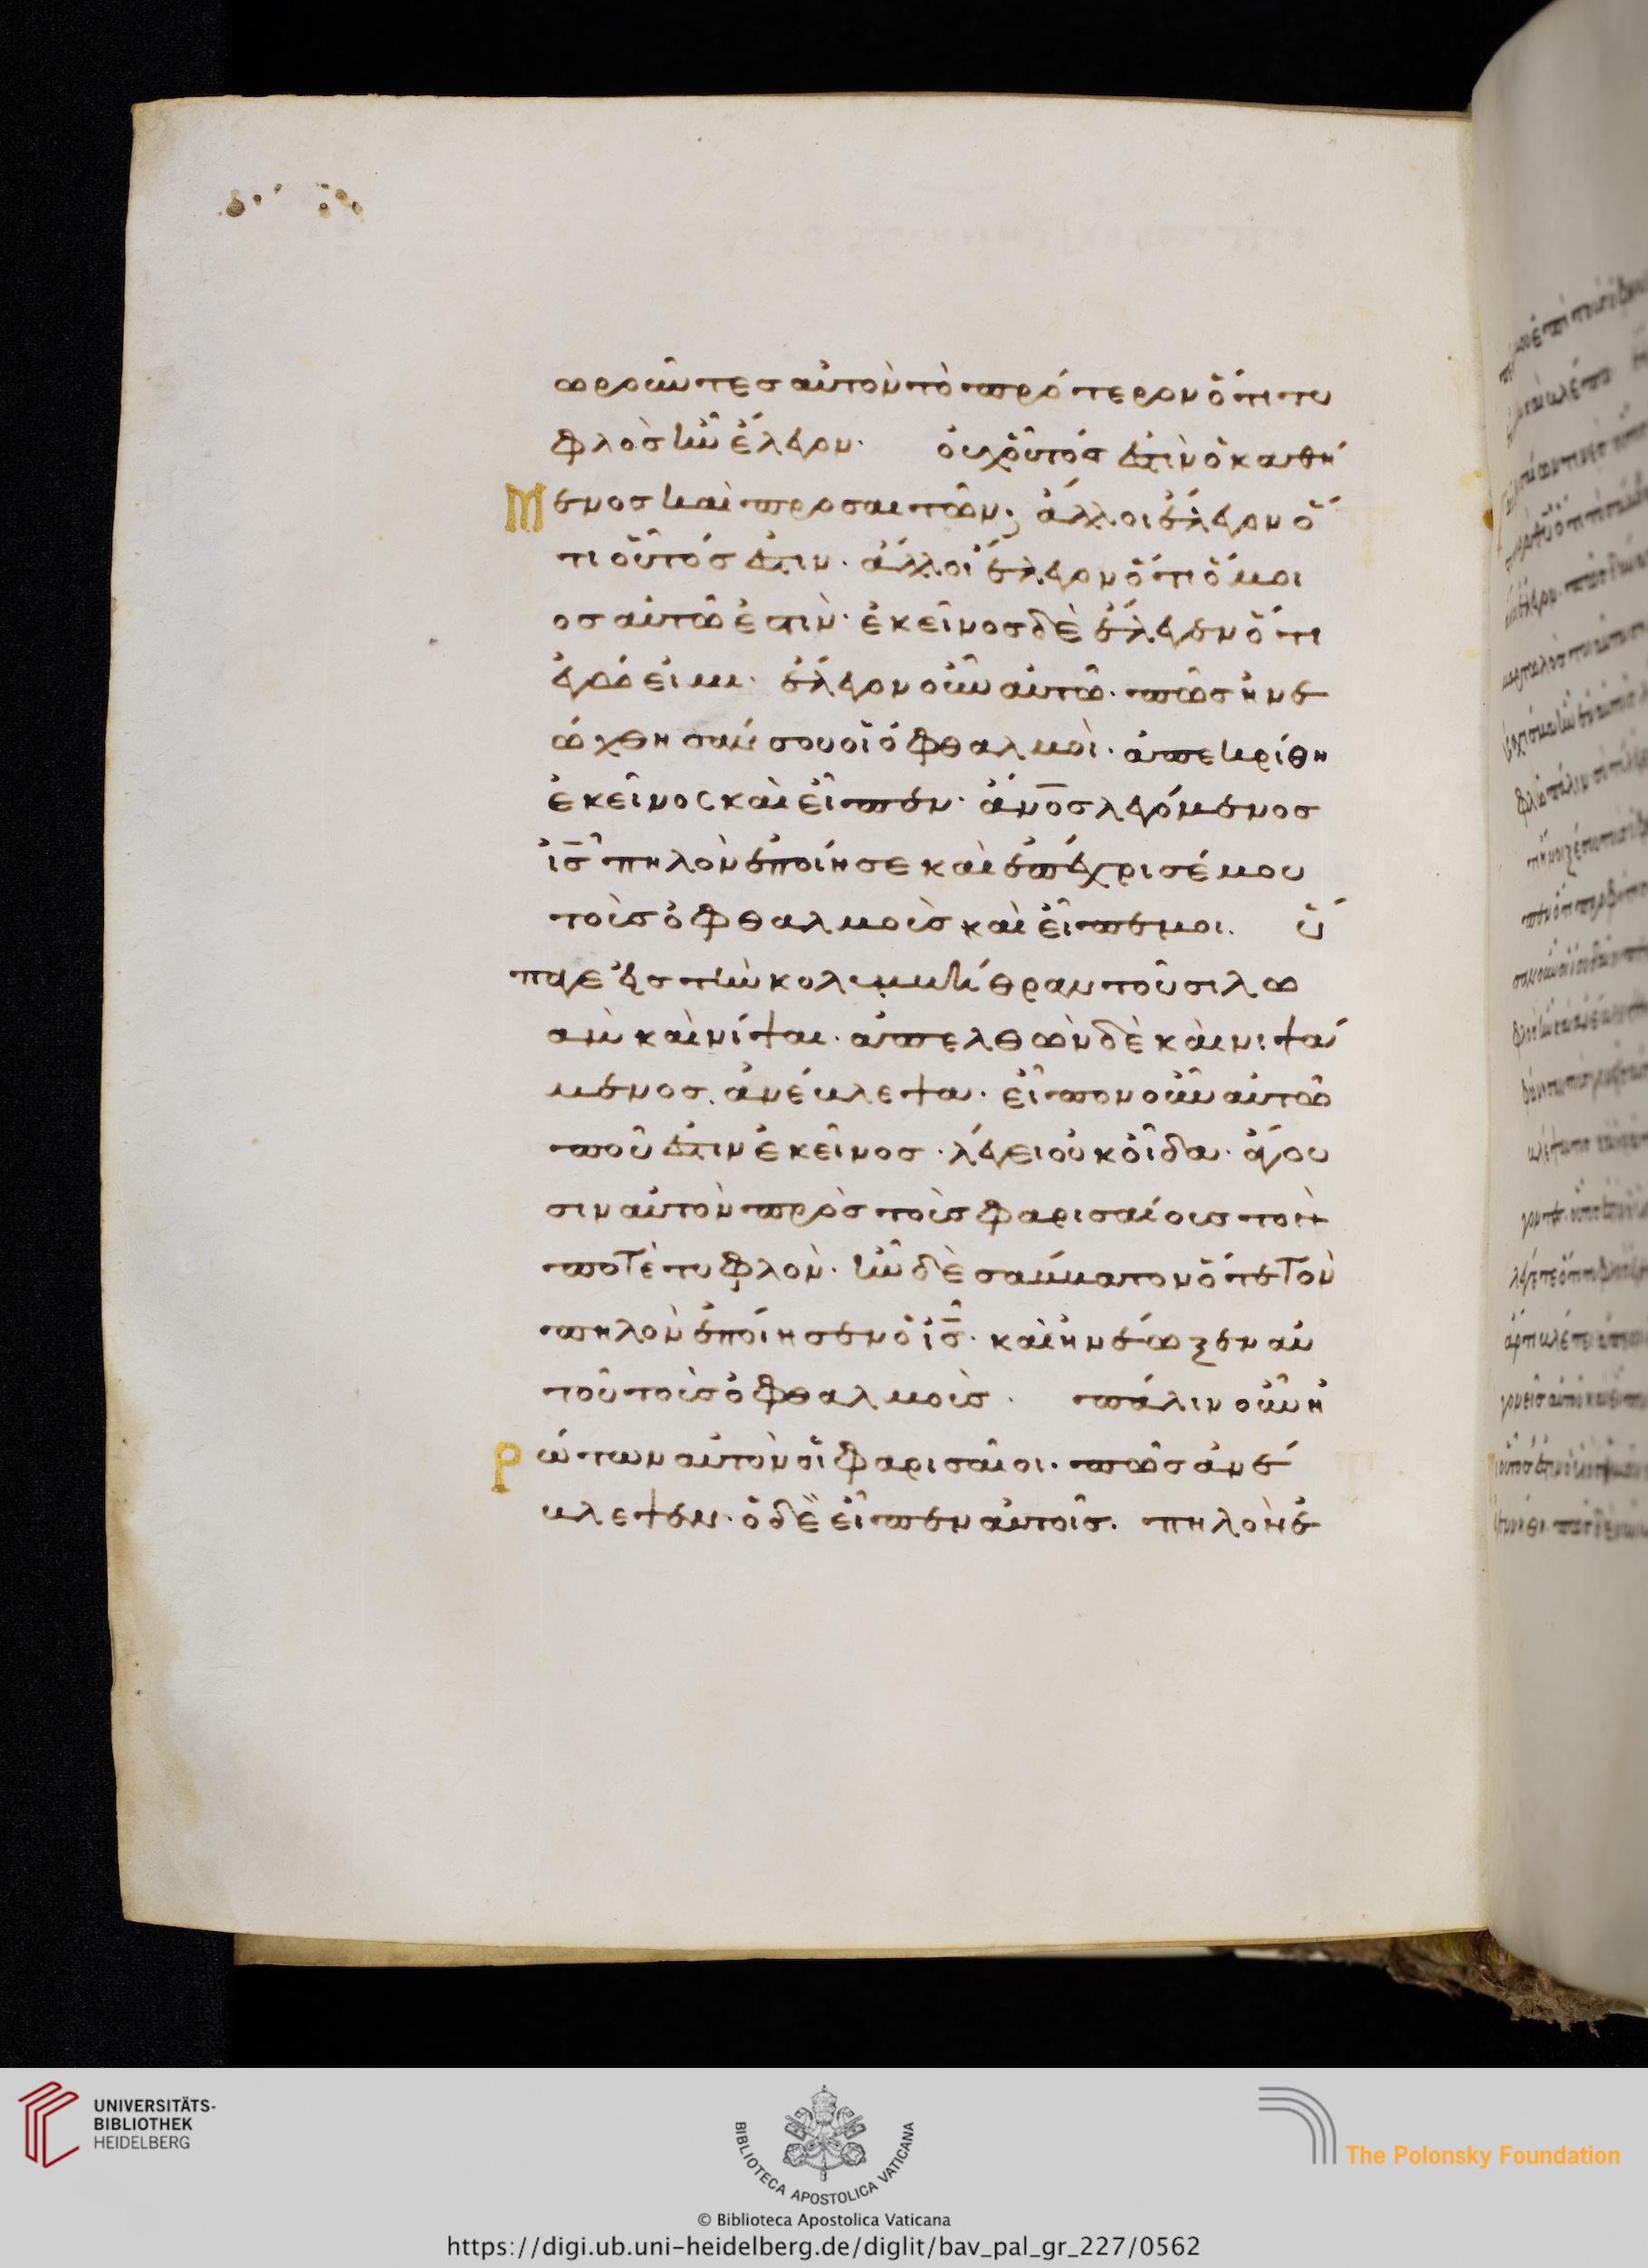 ωροῦντες αὐτὸν τὸ πρότερον ὅτι τυ
φλὸς ἦν ἔλεγον· οὐχ οὗτός ἐστιν ὁ καθή
Μενος καὶ προσαιτῶν; ἄλλοι ἔλεγον ὅ
τι οὗτός ἐστιν· ἄλλοι ἔλεγον ὅτι ὅμοι
ος αὐτῶ ἐστιν· ἐκεῖνος δὲ ἔλεγεν ὅτι
ἐγώ εἰμι· ἔλεγον οὖν αὐτῶ· πῶς ἠνε
ώχθησάν σου οἱ ὀφθαλμοί· ἀπεκρίθη
ἐκεῖνος καὶ εἶπεν· ἄνος λεγόμενος
ις πηλὸν ἐποίησε καὶ ἐπέχρισέ μου
τοὺς ὀφθαλμοὺς καὶ εἶπέ μοι. ὕ
παγε εἰς τὴν κολυμβήθραν τοῦ σιλω
ὰμ καὶ νίψαι· ἀπελθὼν δὲ καὶ νιψά
μενος. ἀνέβλεψα· εἶπον οὖν αὐτῶ
ποῦ ἐστιν ἐκεῖνος· λέγει οὐκ οἶδα· ἄγου
σιν αὐτὸν πρὸς τοὺς φαρισαίους τόν
ποτὲ τυφλόν· ἦν δὲ σάββατον ὅτε τὸν
πηλὸν ἐποίησεν ὁ ις· καὶ ἠνέωξεν αὐ
τοῦ τοὺς ὀφθαλμούς· πάλιν οὖν ἠ
Ρώτων αὐτὸν οἱ φαρισαῖοι· πῶς ἀνέ
βλεψεν· ὁ δὲ εἶπεν αὐτοῖς. πηλὸν ἐ
UNIVERSITÄTS-
BIBLIOTHEK
HEIDELBERG
BIBLIOTECA APOSTOLICA VATICANA
The Polonsky Foundation
© Biblioteca Apostolica Vaticana
https://digi.ub.uni-heidelberg.de/diglit/bav_pal_gr_227/0562